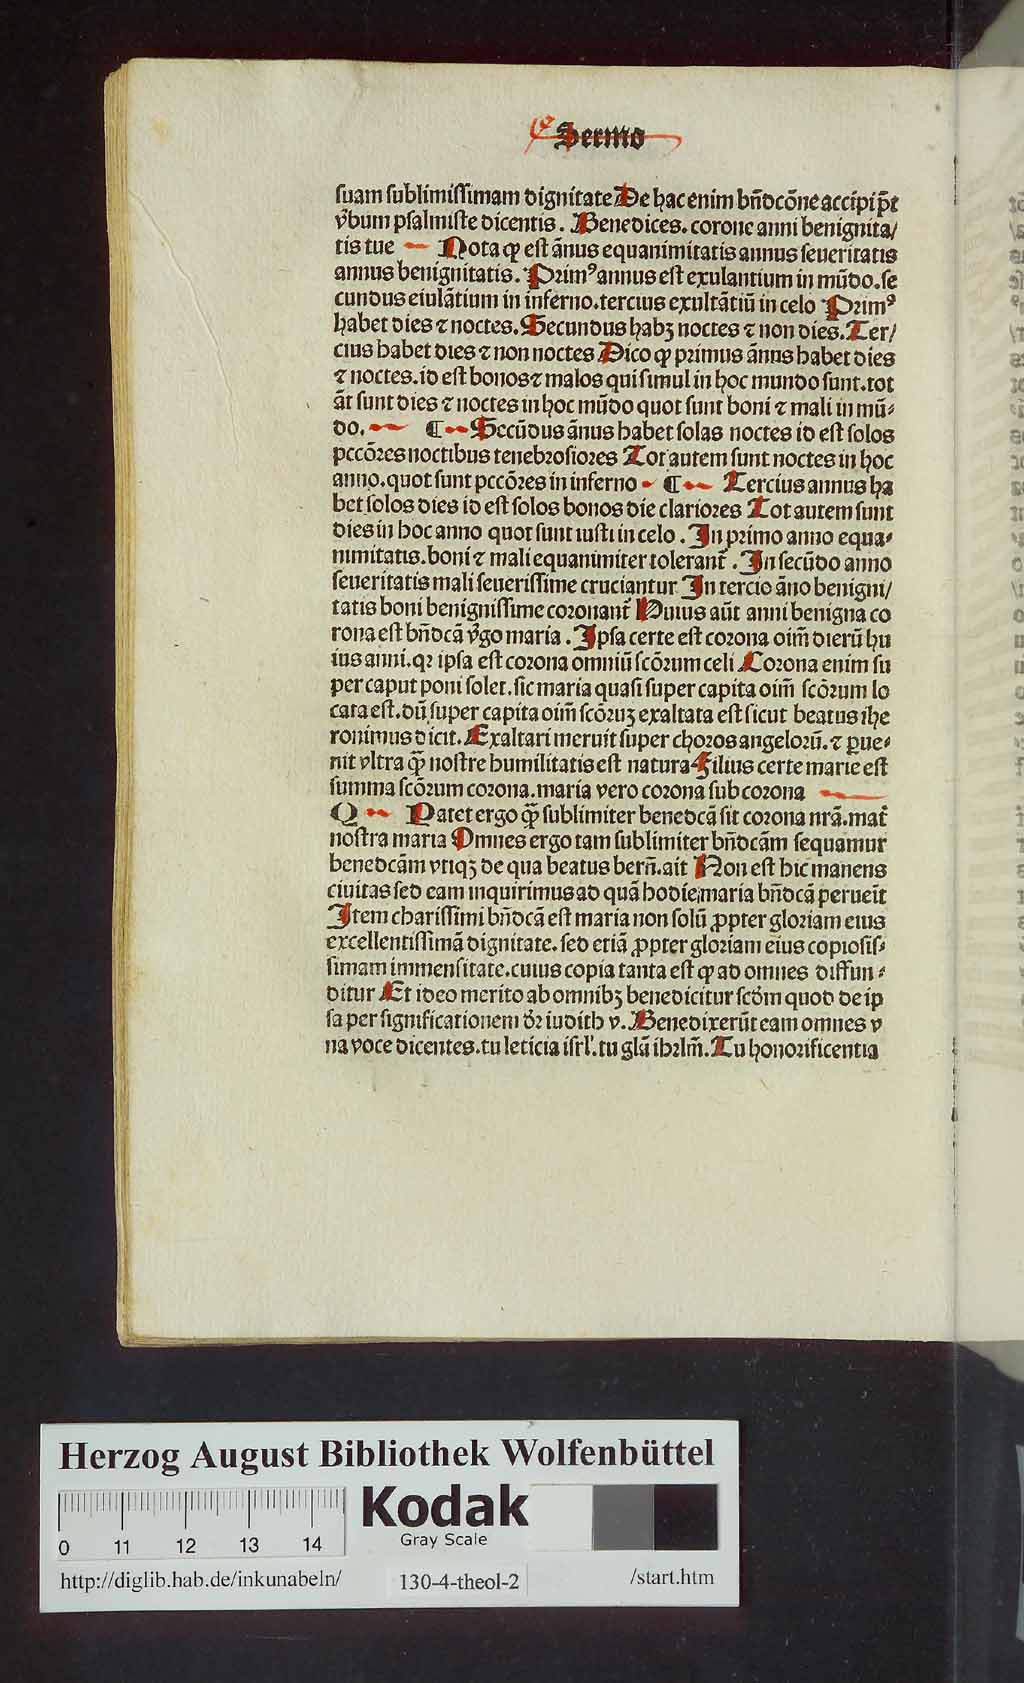 Sermo
suam sublimissimam dignitate De hac enim bñdcõne accipi p̃t
v̾bum psalmiste dicentis. Benedices. corone anni benignita/
tis tue Nota ꝙ est ãnus equanimitatis annus seueritatis
annus benignitatis. Primꝰ annus est exulantium in mũdo. se
cundus eiulãtium in inferno. tercius exultãtiũ in celo Primꝰ
habet dies ⁊ noctes. Secundus habꝫ noctes ⁊ non dies. Ter/
cius habet dies ⁊ non noctes Dico ꝙ primus ãnus habet dies
⁊ noctes. id est bonos ⁊ malos qui simul in hoc mundo sunt. tot
ãt sunt dies ⁊ noctes in hoc mũdo quot sunt boni ⁊ mali in mũ⸗
do. ¶ Secũdus ãnus habet solas noctes id est solos
pccõres noctibus tenebrosiores Tot autem sunt noctes in hoc
anno. quot sunt pccõres in inferno ¶ Tercius annus ha
bet solos dies id est solos bonos die clariores Tot autem sunt
dies in hoc anno quot sunt iusti in celo. In primo anno equa⸗
nimitatis. boni ⁊ mali equanimiter tolerant̃. In secũdo anno
seueritatis mali seuerissime cruciantur In tercio ãno benigni/
tatis boni benignissime coronant̃ Huius aũt anni benigna co
rona est bñdcã v̾go maria. Ipsa certe est corona oim̃ dierũ hu
ius anni. qꝛ ipsa est corona omniũ scõrum celi Corona enim su
per caput poni solet. sic maria quasi super capita oim̃ scõrum lo
cata est. dũ super capita oim̃ scõruꝫ exaltata est sicut beatus ihe
ronimus dicit. Exaltari meruit super choros angelorũ. ⁊ ꝑue⸗
nit vltra qͣ̃ nostre humilitatis est natura Filius certe marie est
summa scõrum corona. maria vero corona sub corona
Q Patet ergo qͣ̃ sublimiter benedcã sit corona nrã. mat̃
nostra maria Omnes ergo tam sublimiter bñdcãm sequamur
benedcãm vtiqꝫ de qua beatus berñ. ait Non est hic manens
ciuitas sed eam inquirimus ad quã hodie maria bñdcã perueit̃
Item charissimi bñdcã est maria non solũ ꝓpter gloriam eius
excellentissimã dignitate. sed etiã ꝓpter gloriam eius copiosis⸗
simam immensitate. cuius copia tanta est ꝙ ad omnes diffun⸗
ditur Et ideo merito ab omnibꝫ benedicitur scd̾m quod de ip
sa per significationem dr̃ iudith v. Benedixerũt eam omnes v
na voce dicentes. tu leticia isrl̾. tu glã ihrlm̃. Tu honorificentia
Herzog August Bibliothek Wolfenbüttel
Kodak
Gray Scale
0 11 12 13 14
http://diglib.hab.de/inkunabeln/ 130-4-theol-2 /start.htm